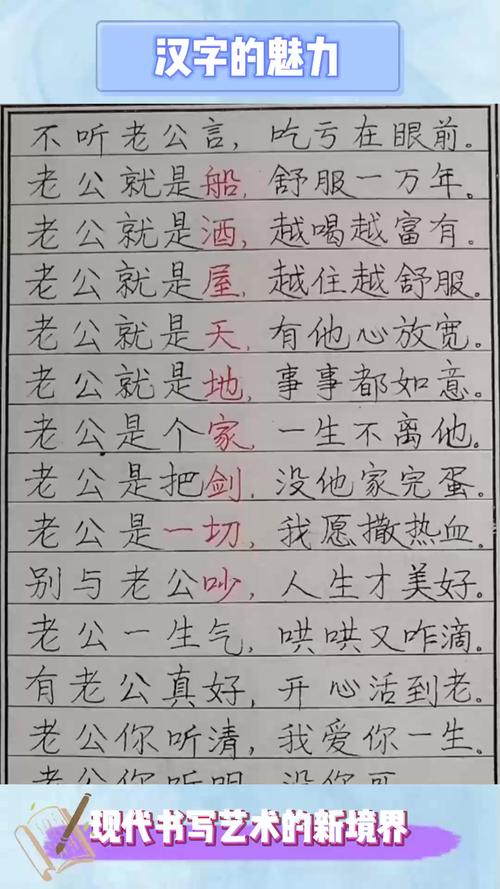 汉字的魅力
不听老公言，吃亏在眼前。
老公就是船，舒服一万年。
老公就是酒，越喝越富有。
老公就是屋，越住越舒服。
老公就是天，有他心放宽。
老公就是地，事事都如意。
老公是个家，一生不离他。
老公是把剑，没他家完蛋。
老公是一切，我愿撒热血。
别与老公吵，人生才美好。
老公一生气，哄哄又咋滴，
有老公真好，开心活到老。
老公你听清，我爱你一生。
老公你听明，没你可
现代书写艺术的新境界